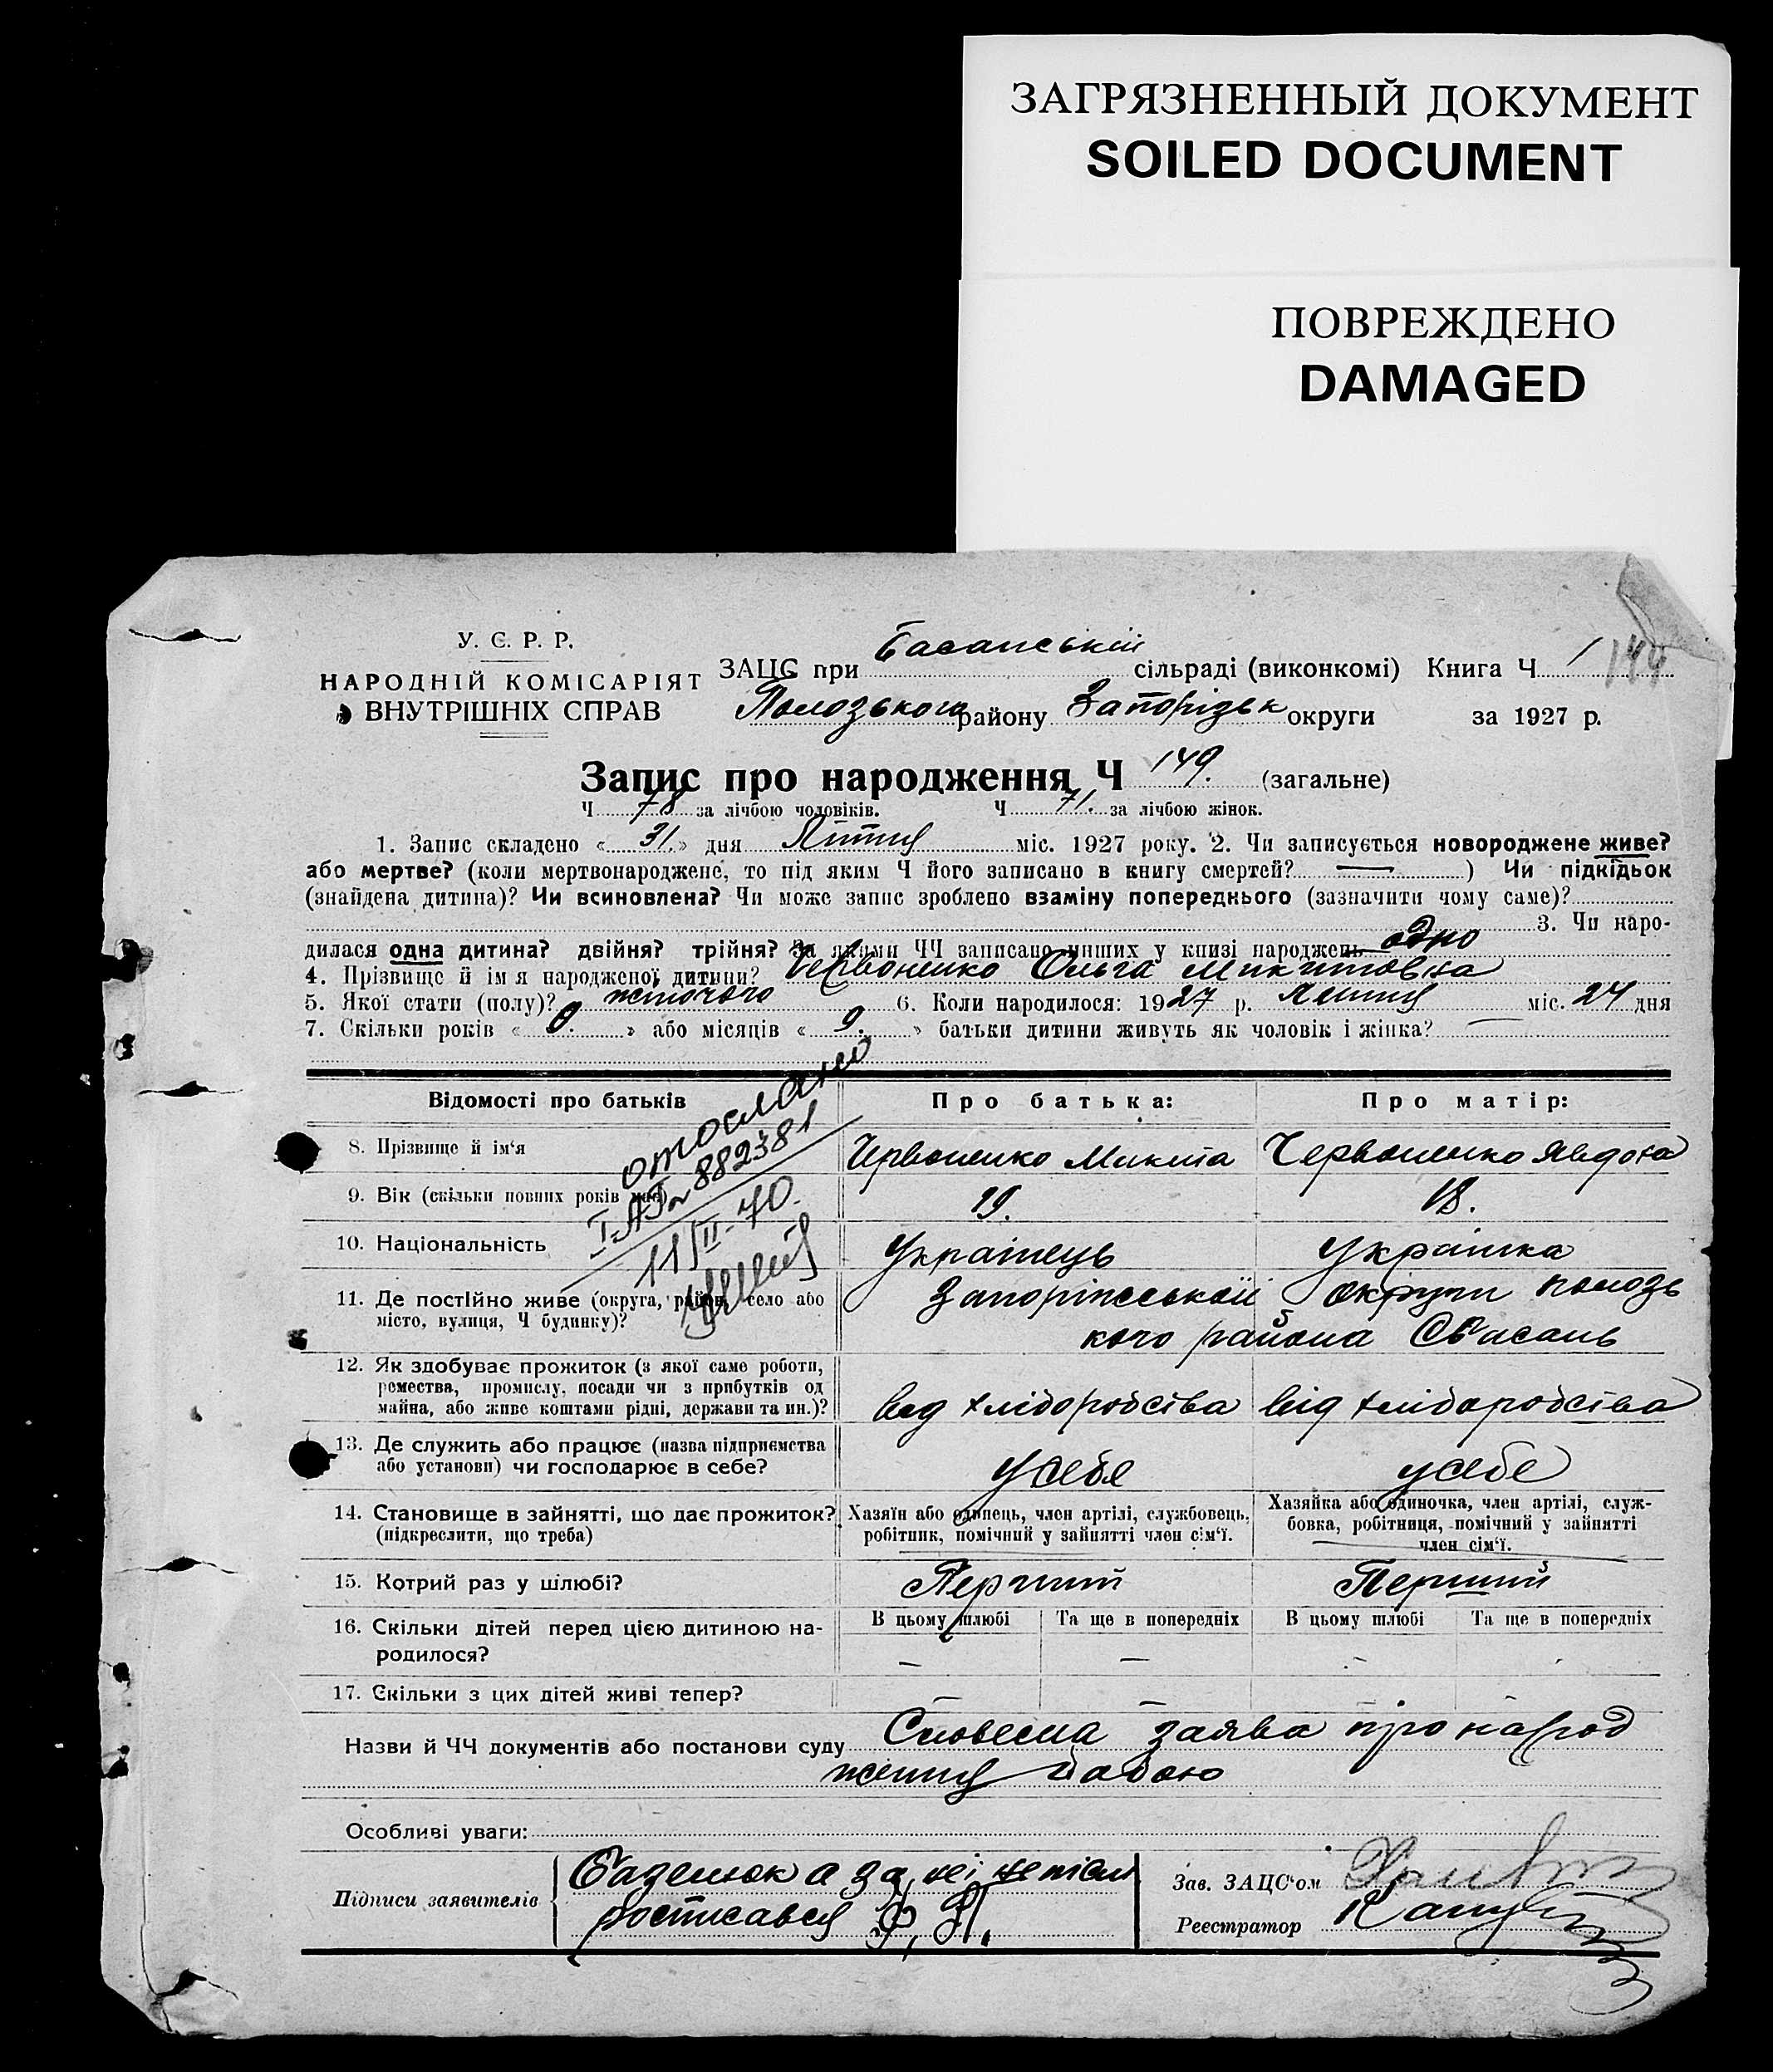 ЗАГРЯЗНЕННЫЙ ДОКУМЕНТ
SOILED DOCUMENT
ПОВРЕЖДЕНО
DAMAGED
У. С. Р. Р.
НАРОДНІЙ КОМІСАРІЯТ
ВНУТРІШНІХ СПРАВ
ЗАЦС при Басанській сільраді (виконкомі) Книга Ч 1 144
Полозького району Запорізьк округи за 1927 р.
Запис про народження Ч 149. (загальне)
Ч 78 за лічбою чоловіків. Ч 71. за лічбою жінок.
1. Запис складено « 31. » дня міс. 1927 року. 2. Чи записується новороджене живе?
або мертве? (коли мертвонароджене, то під яким Ч його записано в книгу смертей? — ) Чи підкідьок
(знайдена дитина)? Чи всиновлена? Чи може запис зроблено взаміну попереднього (зазначити чому саме)?
3. Чи наро-
дилася одна дитина? двійня? трійня? За якими ЧЧ записано инших у книзі народжень одно
4. Прізвище й ім'я народженої дитини? Червоненко Ольга Микитовна
5. Якої стати (полу)? жіночого 6. Коли народилося: 1927 р. міс. 24 дня
7. Скільки років « 0. » або місяців « 9. » батьки дитини живуть як чоловік і жінка? —
Відомості про батьків Про батька: Про матір:
отослано
882381
11/II-70.
8. Прізвище й ім'я Червоненко Микита Червоненко Явдоха
9. Вік (скільки повних років має) 19. 18.
10. Національність Українець Українка
11. Де постійно живе (округа, район, село або
місто, вулиця, Ч будинку)?
Запоріжської округи полозь
кого района Басань
12. Як здобуває прожиток (з якої саме роботи,
ремества, промислу, посади чи з прибутків од
майна, або живе коштами рідні, держави та ин.)?
від хліборобства від хліборобства
13. Де служить або працює (назва підприємства
або установи) чи господарює в себе?
у себе у себе
14. Становище в зайнятті, що дає прожиток?
(підкреслити, що треба)
Хазяїн або одинець, член артілі, службовець,
робітник, помічний у зайнятті член сім'ї.
Хазяйка або одиночка, член артілі, служ-
бовка, робітниця, помічний у зайнятті
член сім'ї.
15. Котрий раз у шлюбі? Перший Перший
16. Скільки дітей перед цією дитиною на-
родилося?
В цьому шлюбі Та ще в попередніх В цьому шлюбі Та ще в попередніх
— — - -
17. Скільки з цих дітей живі тепер?
Назви й ЧЧ документів або постанови суду Словесна заява про народ
ження бабою
Особливі уваги:
Підписи заявителів
а за неї
росписався
Зав. ЗАЦС'ом
Реєстратор